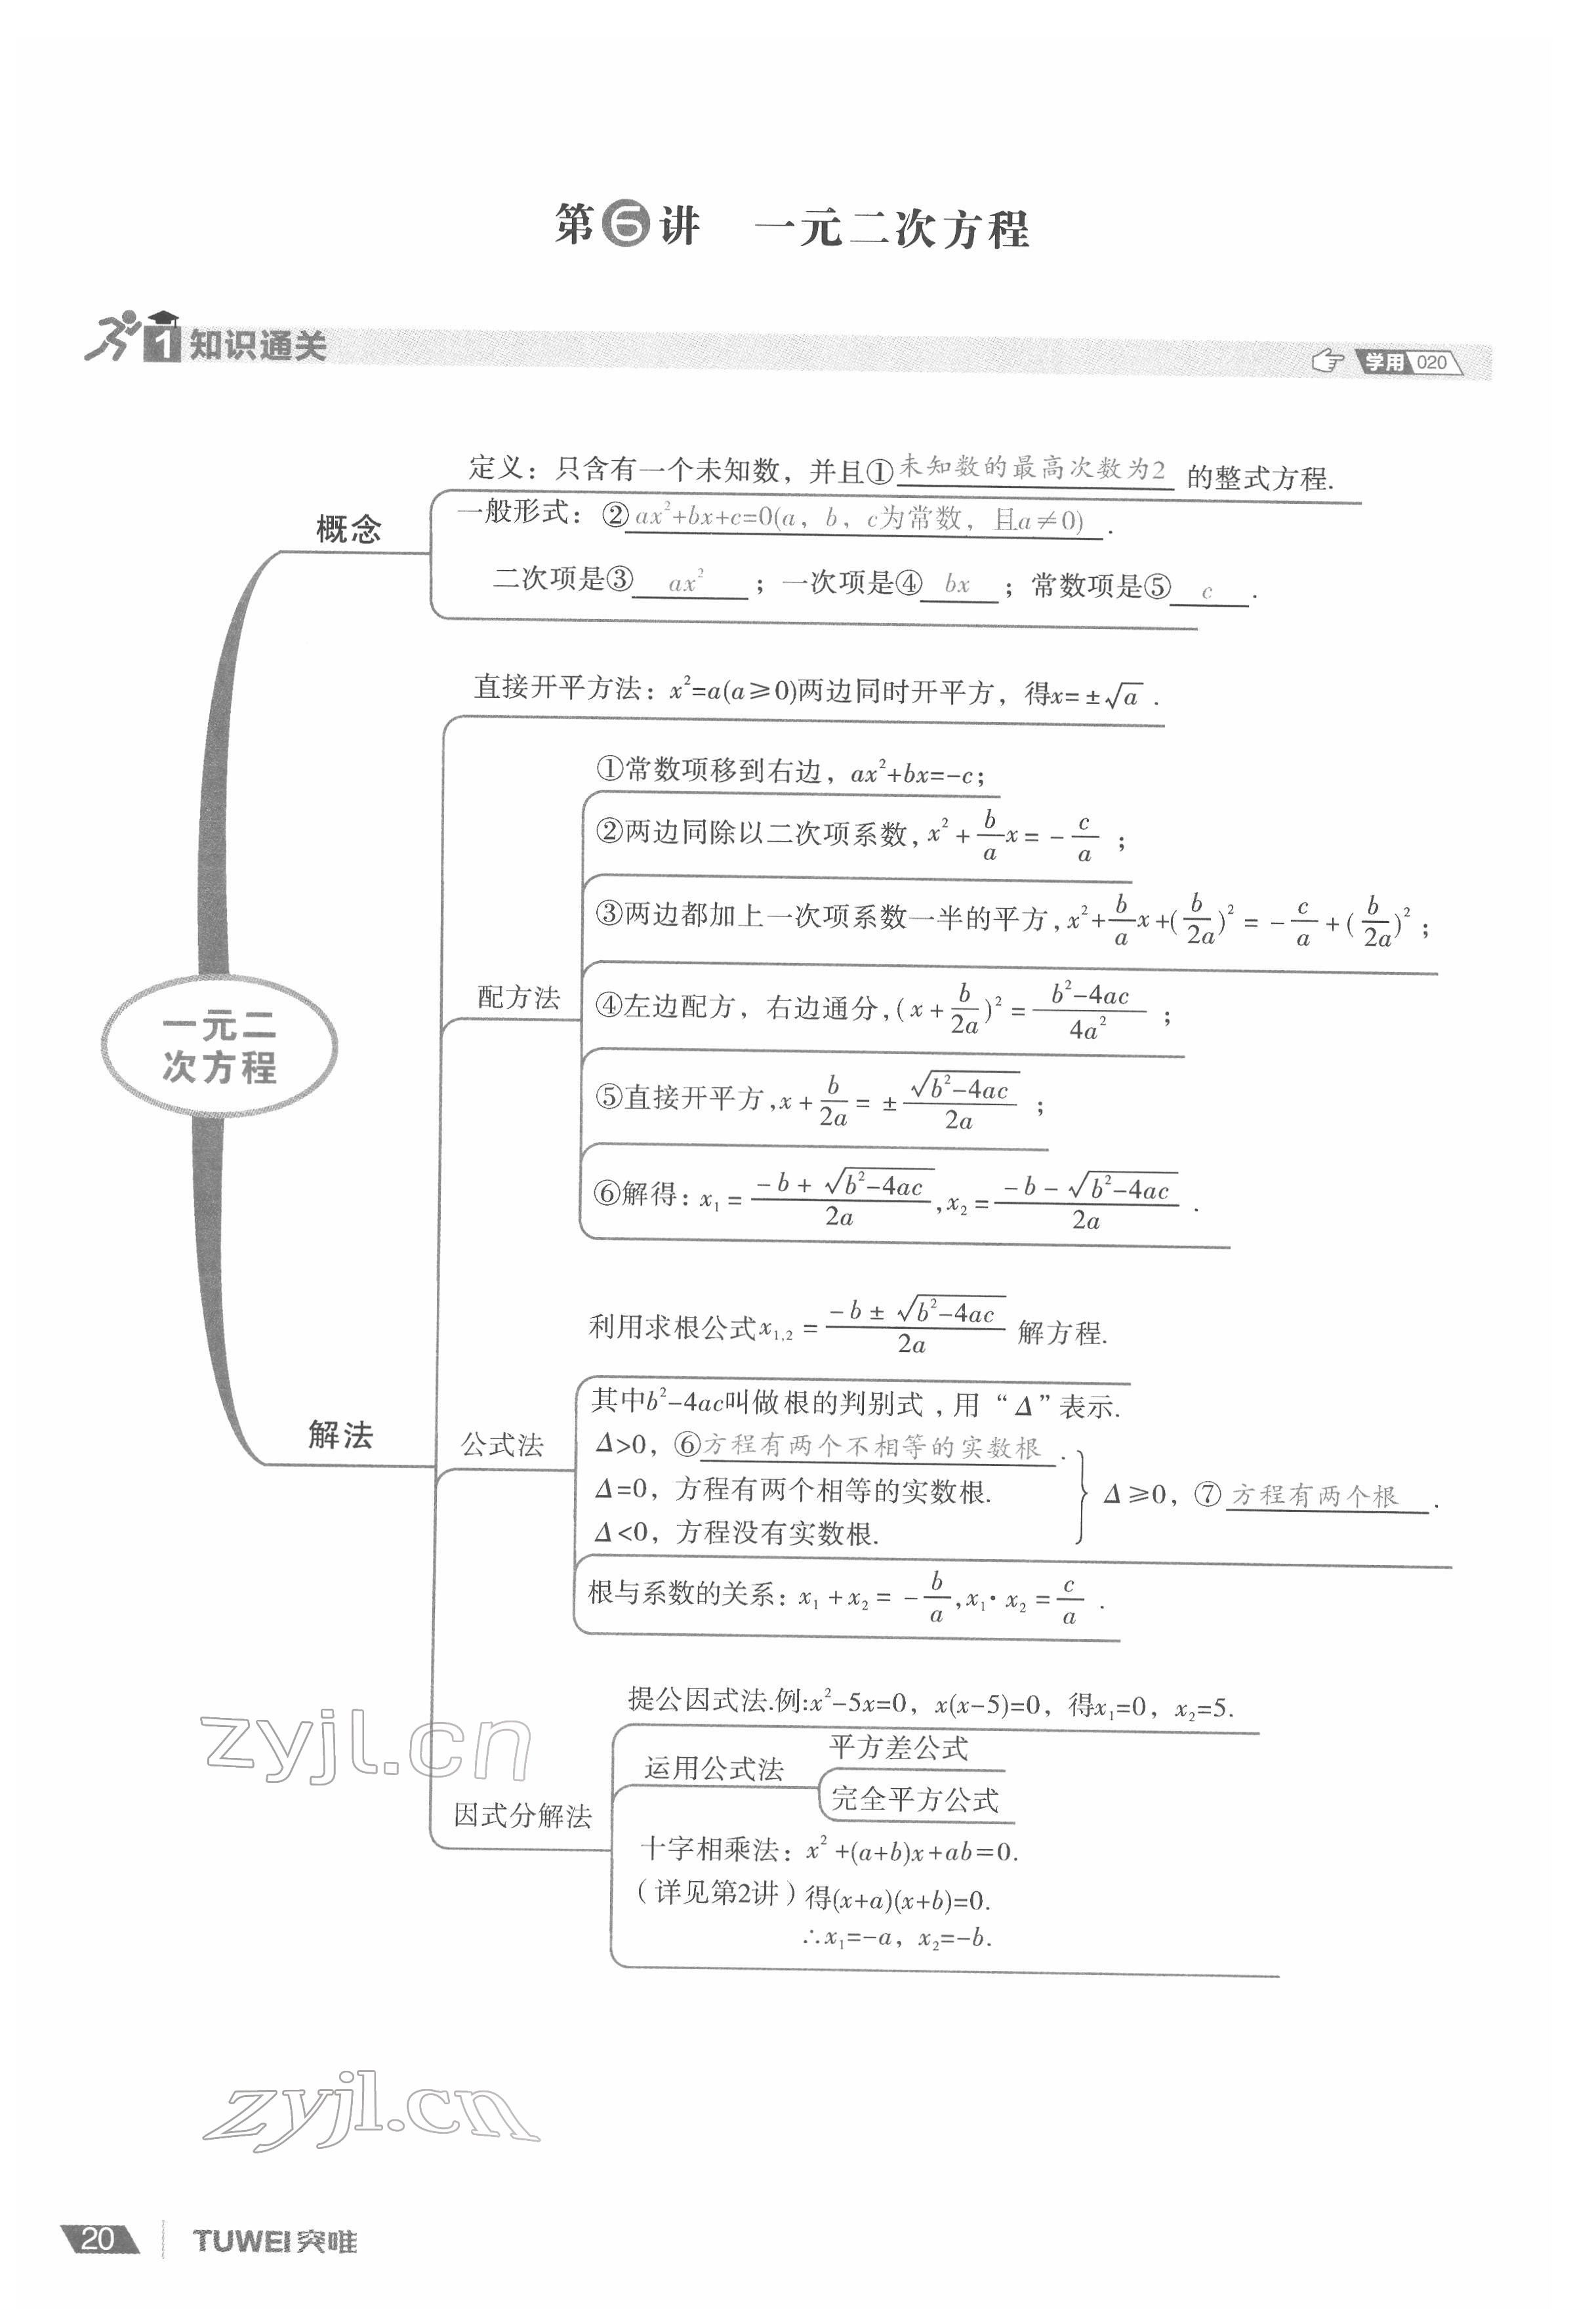 第6讲 一元二次方程
1 知识通关
学用 020
定义：只含有一个未知数，并且①未知数的最高次数为2 的整式方程.
概念
一般形式：②ax²+bx+c=0(a，b，c为常数，且a≠0).
二次项是③ ax² ；一次项是④ bx ；常数项是⑤ c .
直接开平方法：x²=a(a≥0)两边同时开平方，得x=±√a .
①常数项移到右边，ax²+bx=-c；
②两边同除以二次项系数,x²+b/a x=-c/a；
③两边都加上一次项系数一半的平方,x²+b/a x+(b/2a)²=-c/a+(b/2a)²；
配方法
④左边配方，右边通分,(x+b/2a)²=(b²-4ac)/4a²；
一元二
次方程
⑤直接开平方,x+b/2a=±√(b²-4ac)/2a；
⑥解得：x₁=(-b+√(b²-4ac))/2a,x₂=(-b-√(b²-4ac))/2a.
利用求根公式x₁,₂=(-b±√(b²-4ac))/2a 解方程.
其中b²-4ac叫做根的判别式，用“Δ”表示.
解法
公式法
Δ>0，⑥方程有两个不相等的实数根.
Δ=0，方程有两个相等的实数根.
Δ≥0，⑦方程有两个根.
Δ<0，方程没有实数根.
根与系数的关系：x₁+x₂=-b/a,x₁·x₂=c/a.
提公因式法.例:x²-5x=0，x(x-5)=0，得x₁=0，x₂=5.
zyjl.cn
运用公式法
平方差公式
完全平方公式
因式分解法
十字相乘法：x²+(a+b)x+ab=0.
（详见第2讲）得(x+a)(x+b)=0.
∴x₁=-a，x₂=-b.
zyjl.cn
20
TUWEI突唯